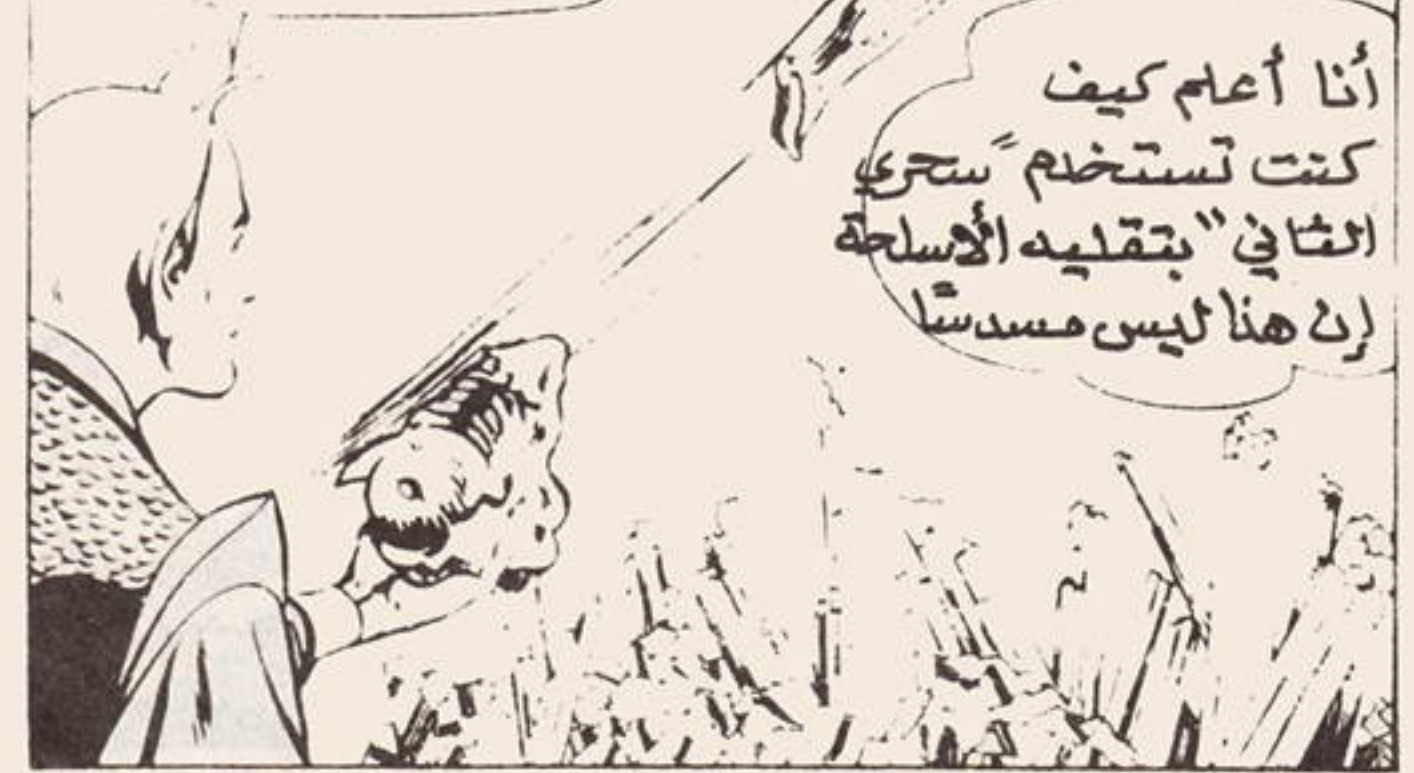 أنا أعلم كيف
كنت تستخدم "سحري
الفاني" بتقليد الأسلحة
إن هذا ليس مسدسًا